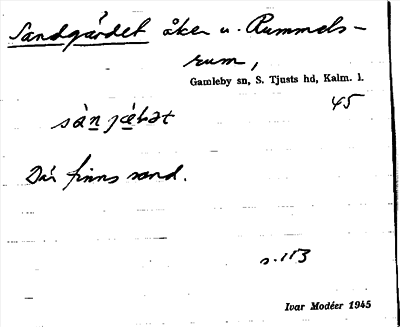 Sandgärdet åker u. Rummels-
rum,
Gamleby sn, S. Tjusts hd, Kalm. l.
45
Där finns sand.
s. 113
Ivar Modéer 1945